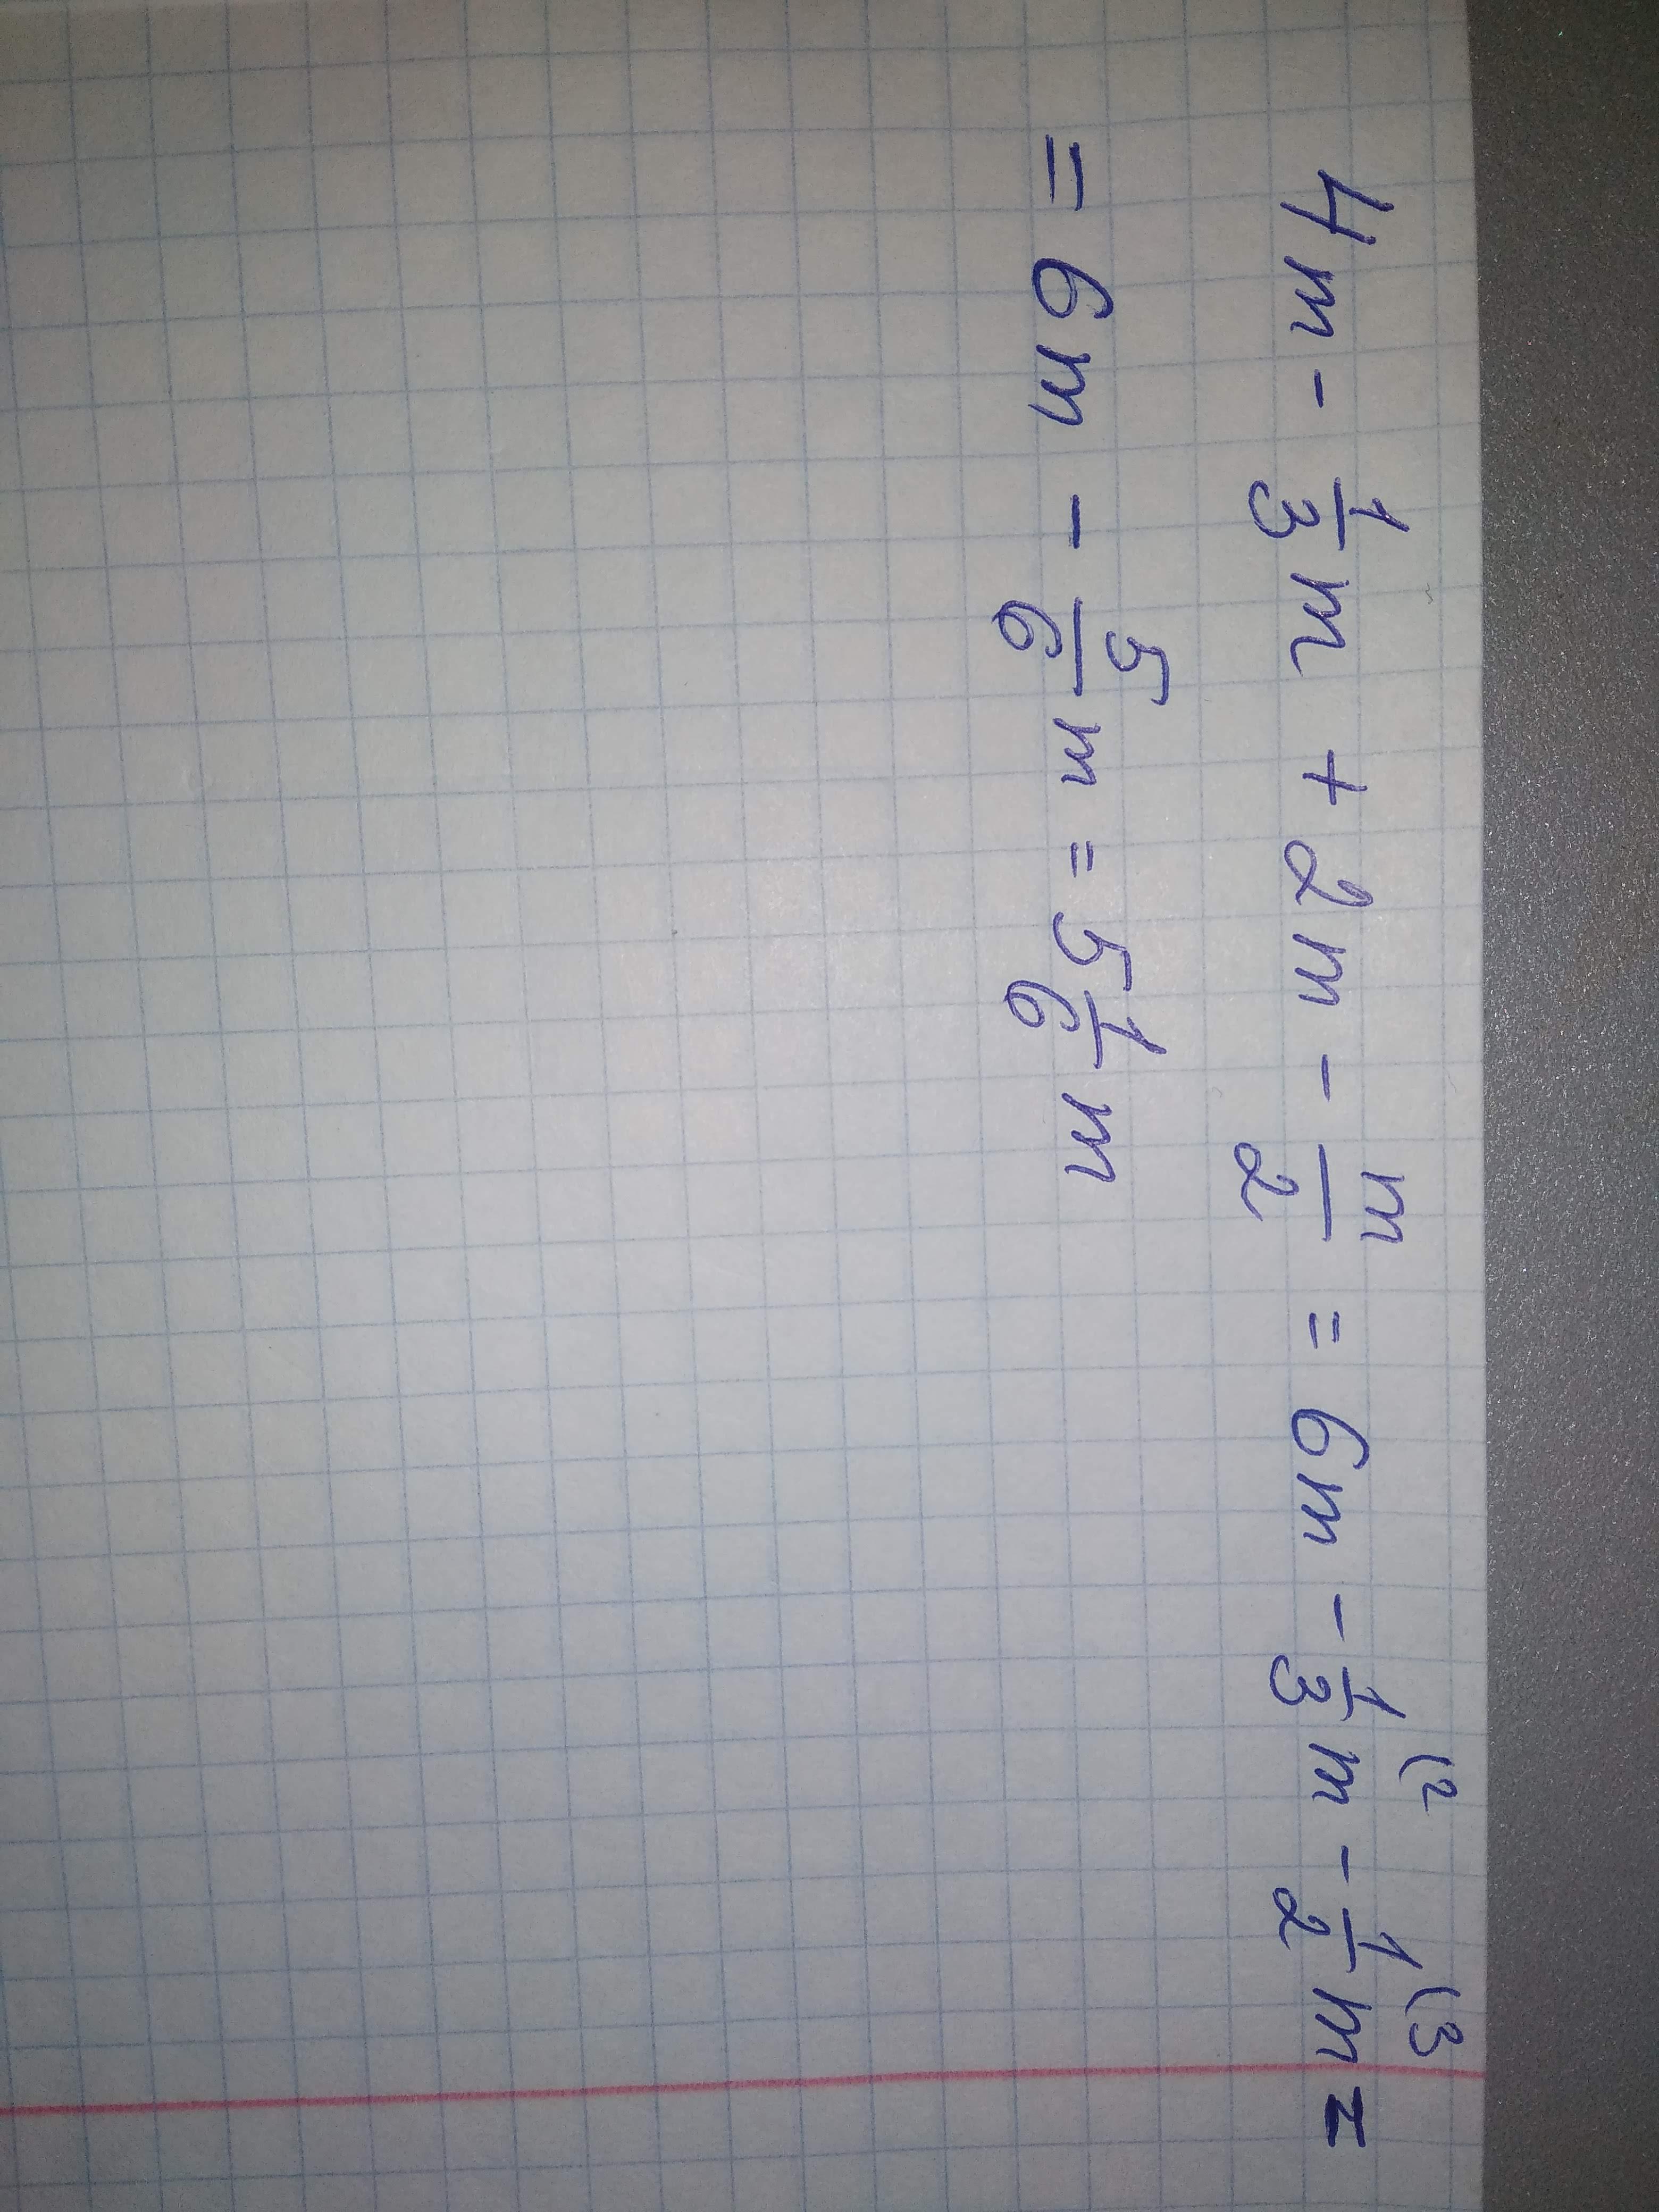 4m - 1/3 m + 2m - m/2 = 6m - 1/3 (2 m - 1/2 (3 m =
= 6m - 5/6 m = 5 1/6 m